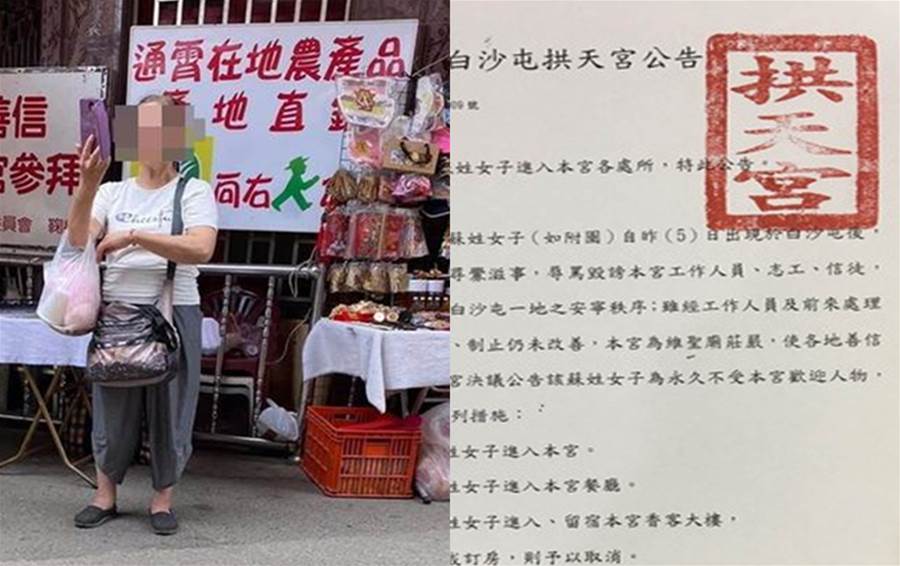 通霄在地農產品
產地直銷
向右
善信
宮參拜
員會
Cheerful
白沙屯拱天宮公告
號
姓女子進入本宮各處所，特此公告。
拱天宮
蘇姓女子（如附圖）自昨（5）日出現於白沙屯後，
尋釁滋事，辱罵毀謗本宮工作人員、志工、信徒，
白沙屯一地之安寧秩序；雖經工作人員及前來處理
、制止仍未改善，本宮為維聖廟莊嚴，使各地善信
宮決議公告該蘇姓女子為永久不受本宮歡迎人物，
列措施：
姓女子進入本宮。
姓女子進入本宮餐廳。
姓女子進入、留宿本宮香客大樓，
或訂房，則予以取消。